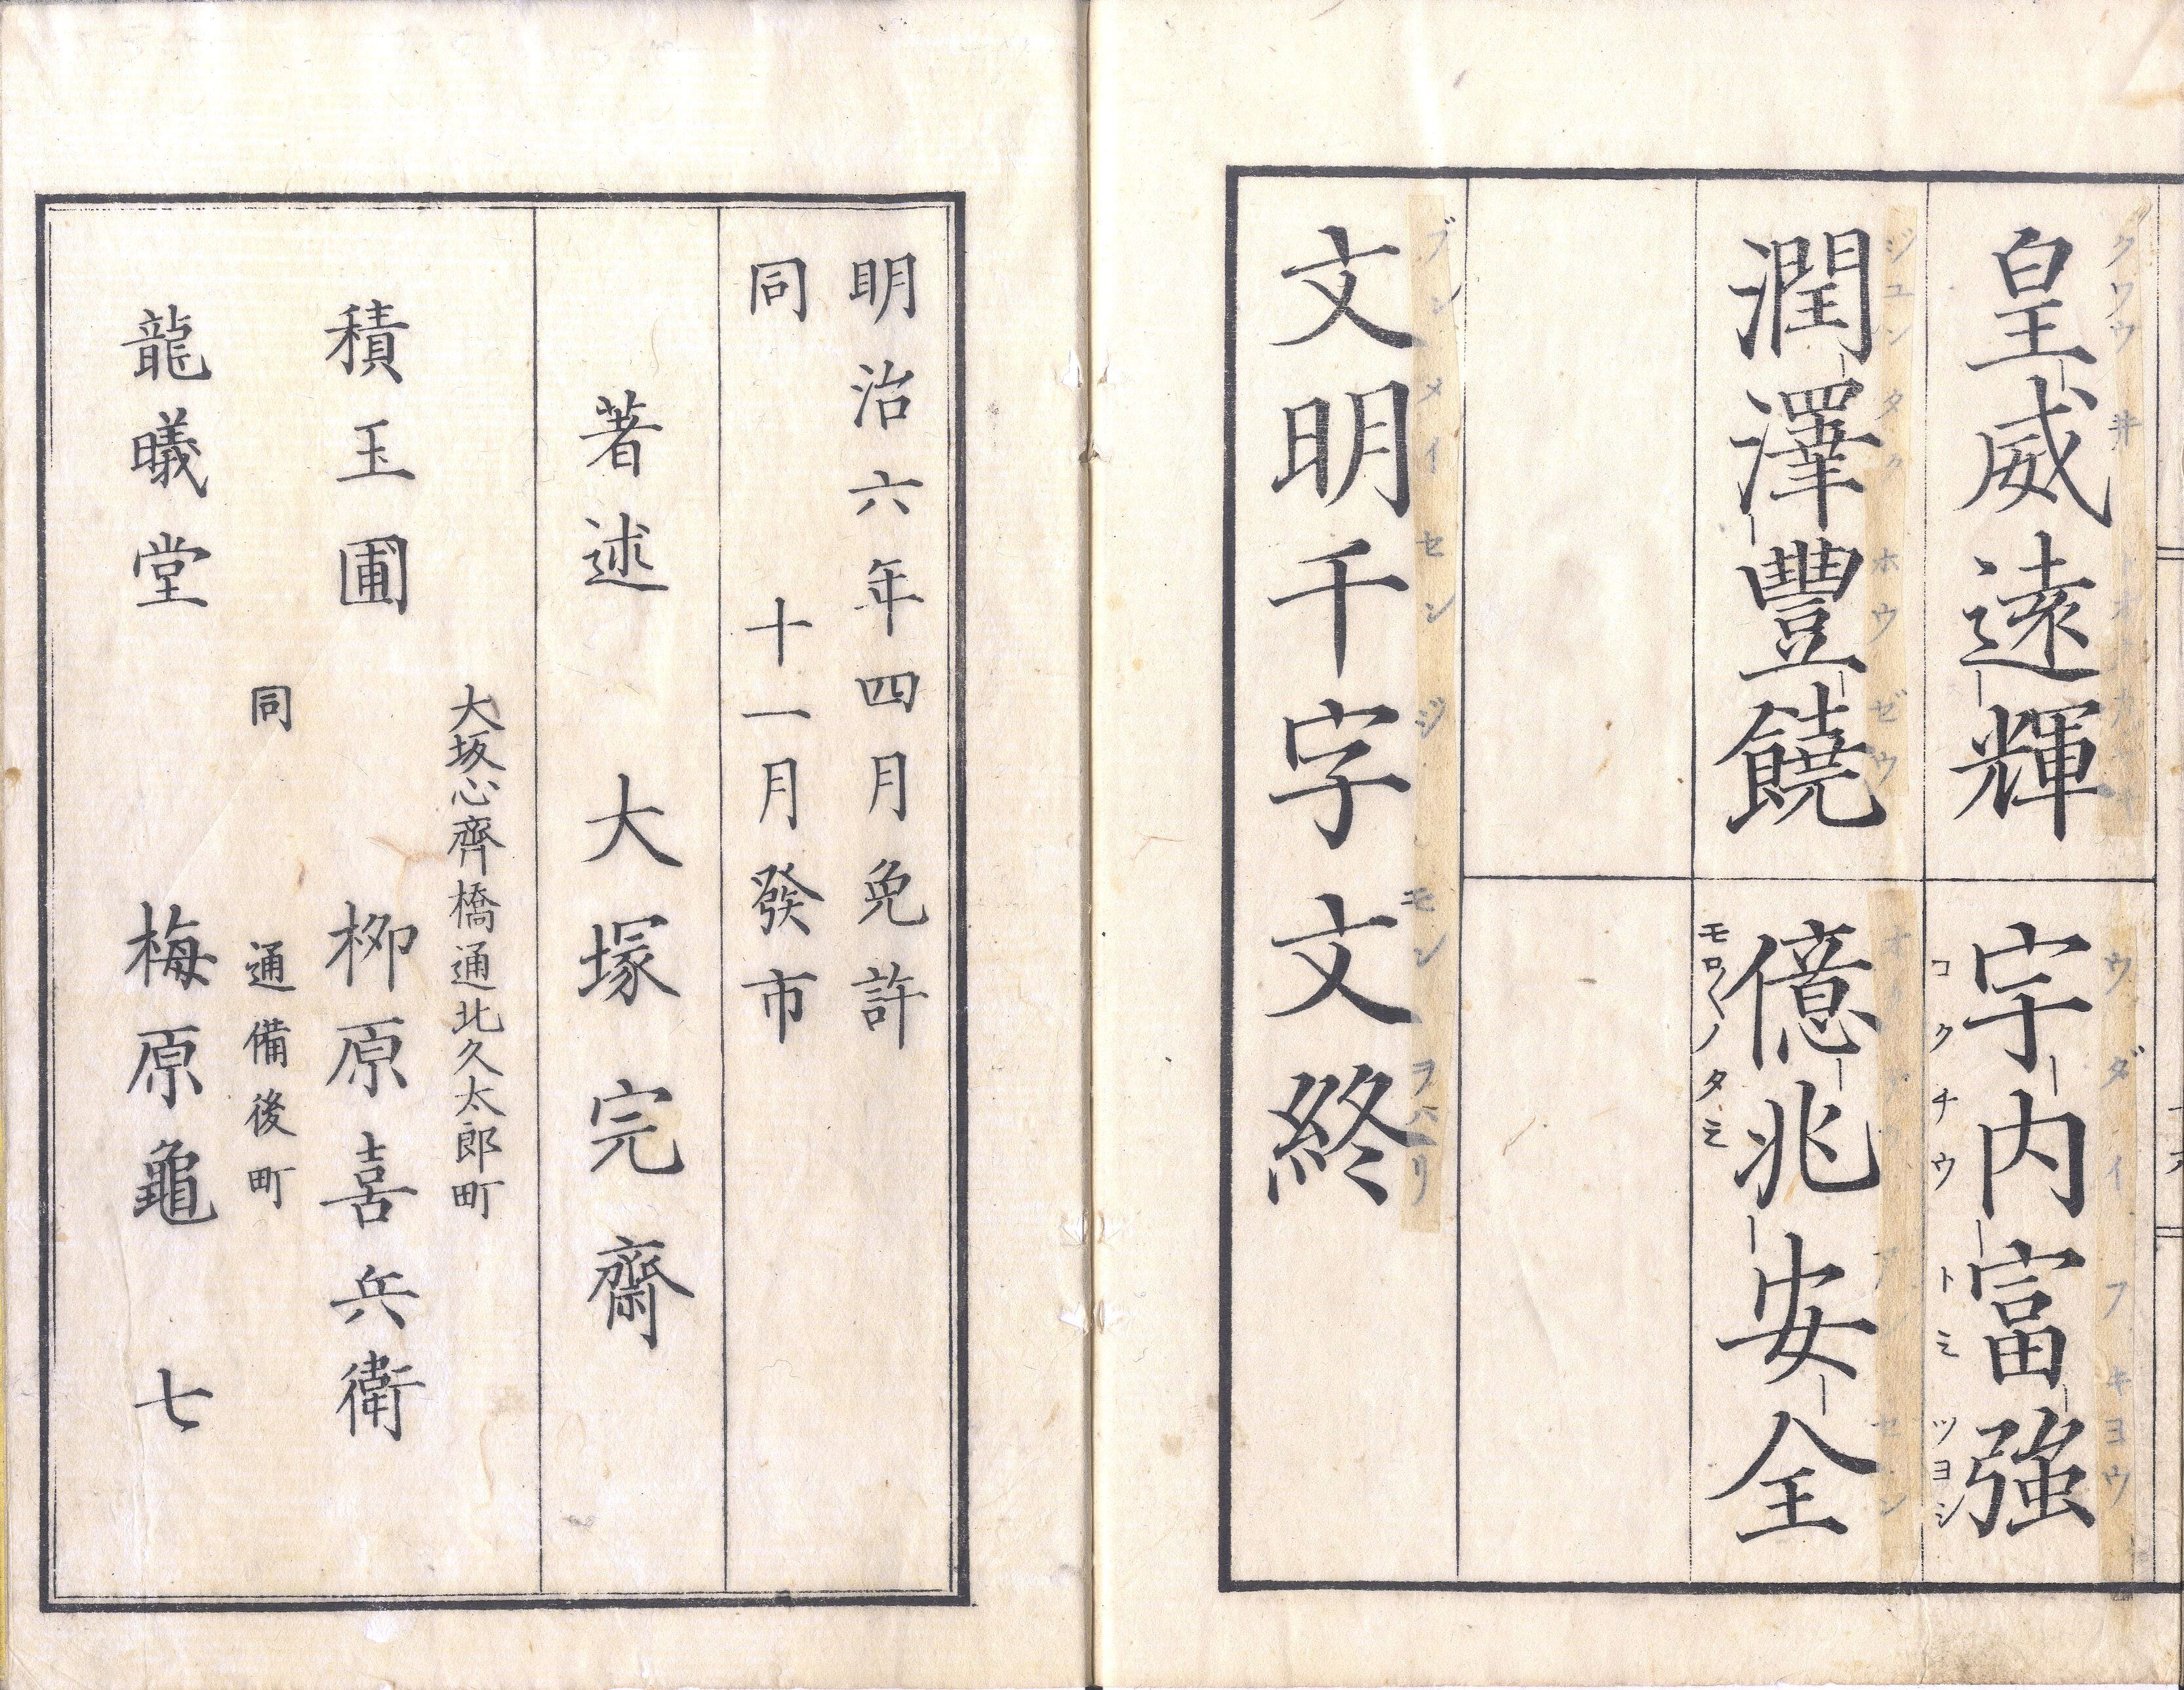 皇威遠輝
クワウ井
宇内富強
ウダイフキヨウ
コクチウトミツヨシ
潤澤豐饒
ジユンタクホウゼウ
億兆安全
モロ〱ノタミ
文明千字文終
ブンメイセンジモンヲハリ
明治六年四月免許
同十一月發市
著述 大塚完齋
大坂心齊橋通北久太郎町
積玉圃 栁原喜兵衛
同 通備後町
龍曦堂 梅原龜七